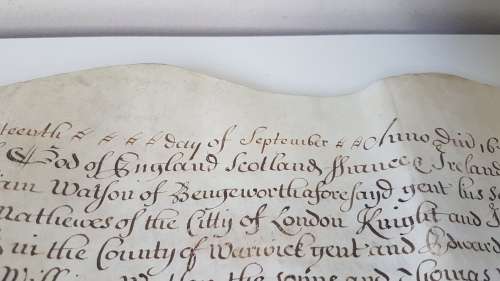 teenth day of September Anno Dni 16
God of England Scotland France & Ireland
Watson of Bengeworth aforesayd gent his
Mathewes of the Citty of London Knight and
in the County of Warwick gent and Edward
the sonne and Thomas